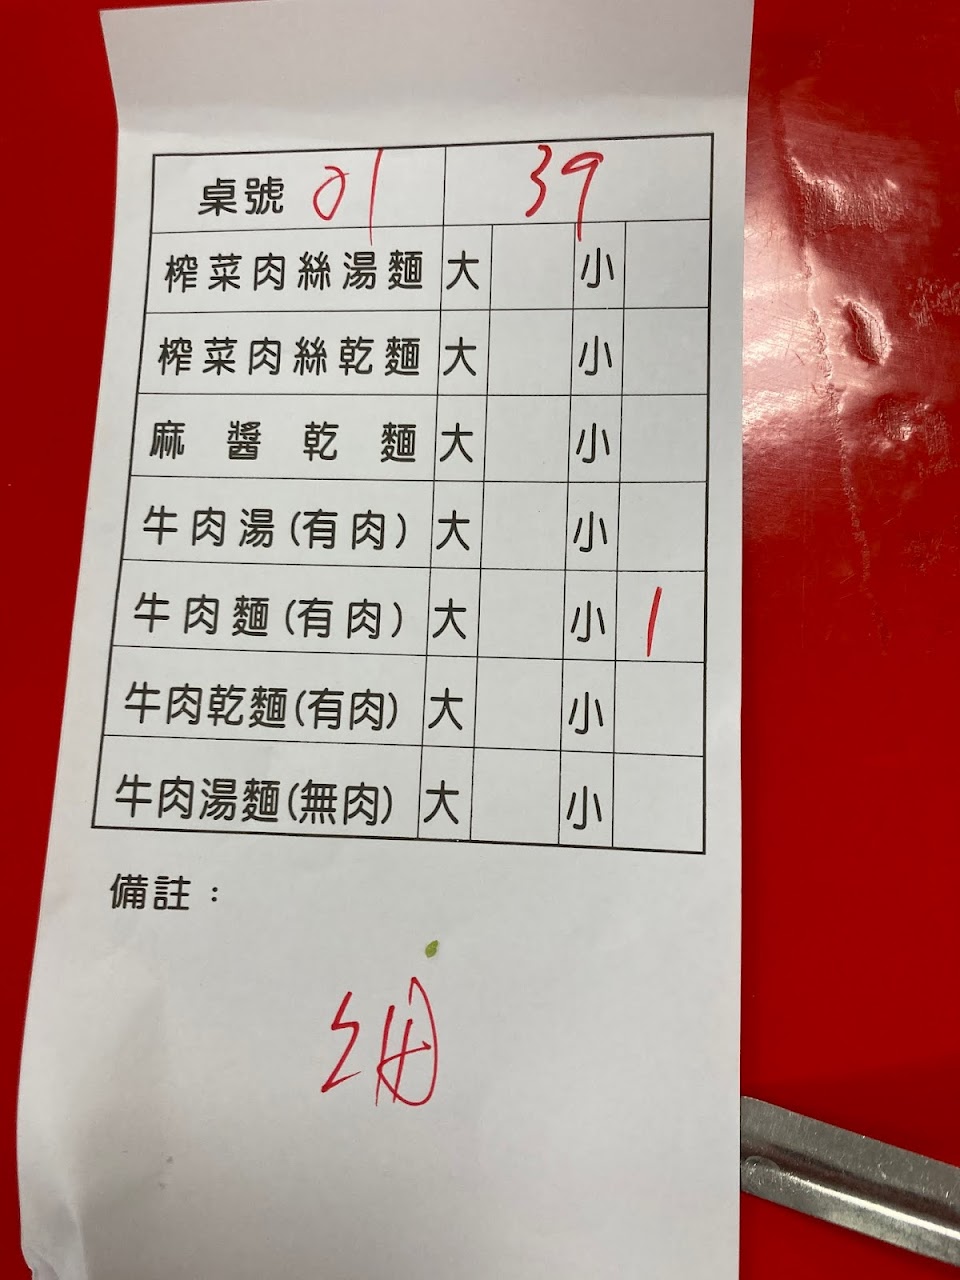 桌號 01 39
榨菜肉絲湯麵 大 小
榨菜肉絲乾麵 大 小
麻醬乾麵 大 小
牛肉湯(有肉) 大 小
牛肉麵(有肉) 大 小 1
牛肉乾麵(有肉) 大 小
牛肉湯麵(無肉) 大 小
備註：
細